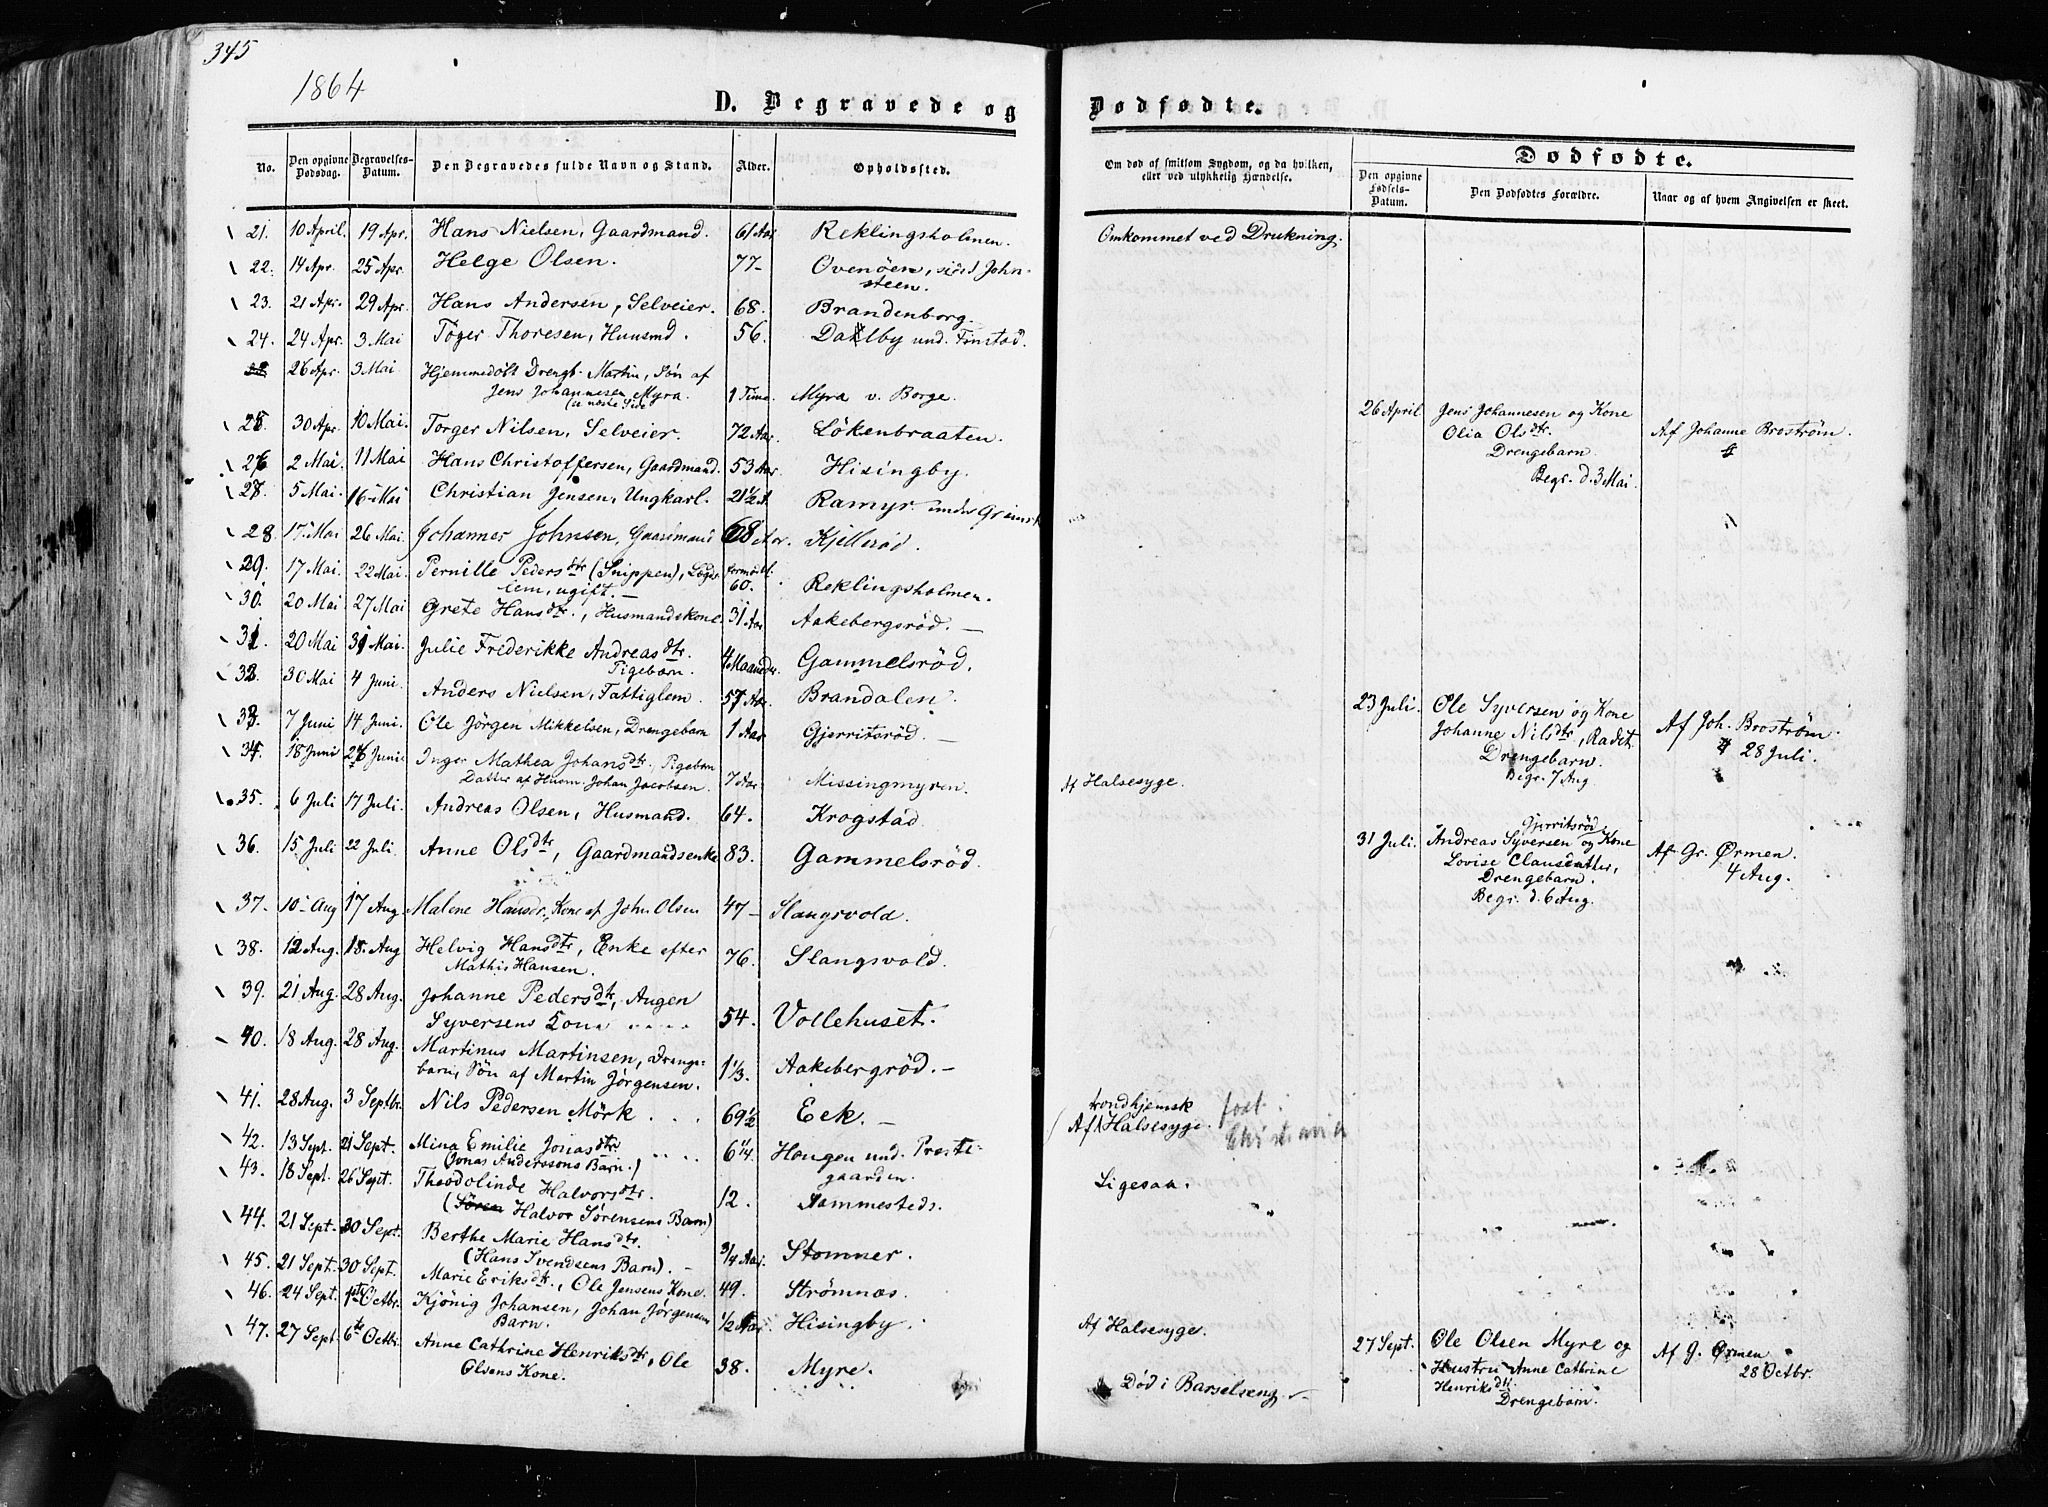 345
1864
D. Begravede og
Dødfødte.
No.
Den opgivne Dødsdag.
Begravelses-Datum.
Den Begravedes fulde Navn og Stand.
Alder.
Opholdssted.
Om død af smitsom Sygdom, og da hvilken, eller ved ulykkelig Hændelse.
Dødfødte.
Den opgivne Fødsels-Datum.
Den Dødfødtes Forældre.
Naar og af hvem Angivelsen er skeet.
21. 10 April. 19 Apr. Hans Nielsen, Gaardmand. 61 Aar Reklingsholmen. Omkommet ved Drukning.
22. 14 Apr. 25 Apr. Helge Olsen. 77 - Ovenöen, John-
steen.
23. 21 Apr. 29 Apr. Hans Andersen, Selveier. 68. Brandenborg.
24. 24 Apr. 3 Mai Töger Thoresen, Huusmd. 56. Dalby und. Finstad.
26 Apr. 3 Mai Hjemmedøbt Drengb. Martin, Søn af
Jens Johannesen Myra. 1 Time. Myra v. Borge.
(v. næste Side
26 April Jens Johannesen og Kone
Olia Olsdtr. Af Johanne Broström.
Drengebarn.
Begr. d. 3 Mai.
25. 30 Apr. 10 Mai. Torger Nilsen, Selveier. 72 Aar. Lökenbraaten.
26. 2 Mai. 11 Mai Hans Christoffersen, Gaardmand. 53 Aar. Hisingby.
27. 5 Mai. 16 Mai Christian Jensen, Ungkarl. 21½ A. Ramyr under
28. 17 Mai 26 Mai. Johannes Johnsen, Gaardmand 68 Aar. Kjellerød.
29. 17 Mai. 22 Mai. Pernille Pedersdtr (Snippen), Logs-
lem, ugift. - 60. Reklingsholmen.
30. 20 Mai 27 Mai Grete Hansdtr., Husmandskone. 31 Aar Aakebergsröd. -
31. 20 Mai 31 Mai. Julie Frederikke Andreasdtr.
Pigebarn. 4 Maander. Gammelsröd.
32. 30 Mai 4 Juni. Anders Nielsen, Fattiglem. 57 Aar. Brandalen.
33. 7 Juni 14 Juni. Ole Jörgen Mikkelsen, Drengebarn 1 Aar Gjerritsröd. -
23 Juli. Ole Syversen og Kone
Johanne Nilsdtr, Radit. Af Joh. Broström.
Drengebarn. 28 Juli.
Begr. 7 Aug.
34. 18 Juni 26 Juni Inger Mathea Johansdtr., Pigebarn
Datter af Husm. Johan Jacobsen. 7 Aar. Missingmyren. Af Halsesyge.
35. 6 Juli 17 Juli. Andreas Olsen, Husmand. 64. Krogstad
36. 15 Juli 22 Juli. Anne Olsdtr, Gaardmandsenke 83. Gammelsröd.
Gjerritsröd
31 Juli. Andreas Syversen og Kone
Lovise Clausdatter, Af Gr. Ørmen.
Drengebarn. 4 Aug.
Begr. d. 6 Aug.
37. 10 Aug 17 Aug. Malene Hansdr., Kone af John Olsen 47 - Slangsvold.
38. 12 Aug. 18. Aug Helvig Hansdtr, Enke efter
Mathis Hansen. 76. Slangsvold.
39. 21 Aug. 28 Aug. Johanne Pedersdtr, Augen
Syversens Kone 54. Vollehuset.
40. 18 Aug. 28 Aug. Martinus Martinsen, Drenge-
barn, Sön af Martin Jørgensen. 1⅓. Aakebergröd. -
41. 28 Aug. 3 Septbr. Nils Pedersen Mörk. 69½ Eek. -
trondhjemsk
42. 13 Sept. 21 Sept. Mina Emilie Jonasdtr.
(Jonas Anderssons Barn.) 6¼. Hougen und. Preste-
gaarden. Af Halsesyge.
43. 18 Sept. 26 Sept. Theodolinde Halvorsdtr.
(Sören Halvor Sørensens Barn) 12. Ligesaa.
44. 21 Sept. 30 Sept. Berthe Marie Hansdtr.
(Hans Svendsens Barn). - ¾ Aar. Stomner.
45. 21 Sept. 30 Sept. Marie Eriksdtr., Ole Jensens Kone. 49. Strömnæs.
46. 24 Sept. 1ste Octbr. Kjönig Johansen, Johan Jørgensen
Barn. ½ Aar. Hisingby. Af Halsesyge.
47. 27 Sept. 6te Octbr. Anne Cathrine Henriksdtr, Ole
Olsens Kone. 38. Myre. Död i Barselseng.
27 Sept. Ole Olsen Myre og
Hustru Anne Cathrine Af G. Ørmen
Henriksdtr. 28 Octbr.
Drengebarn.